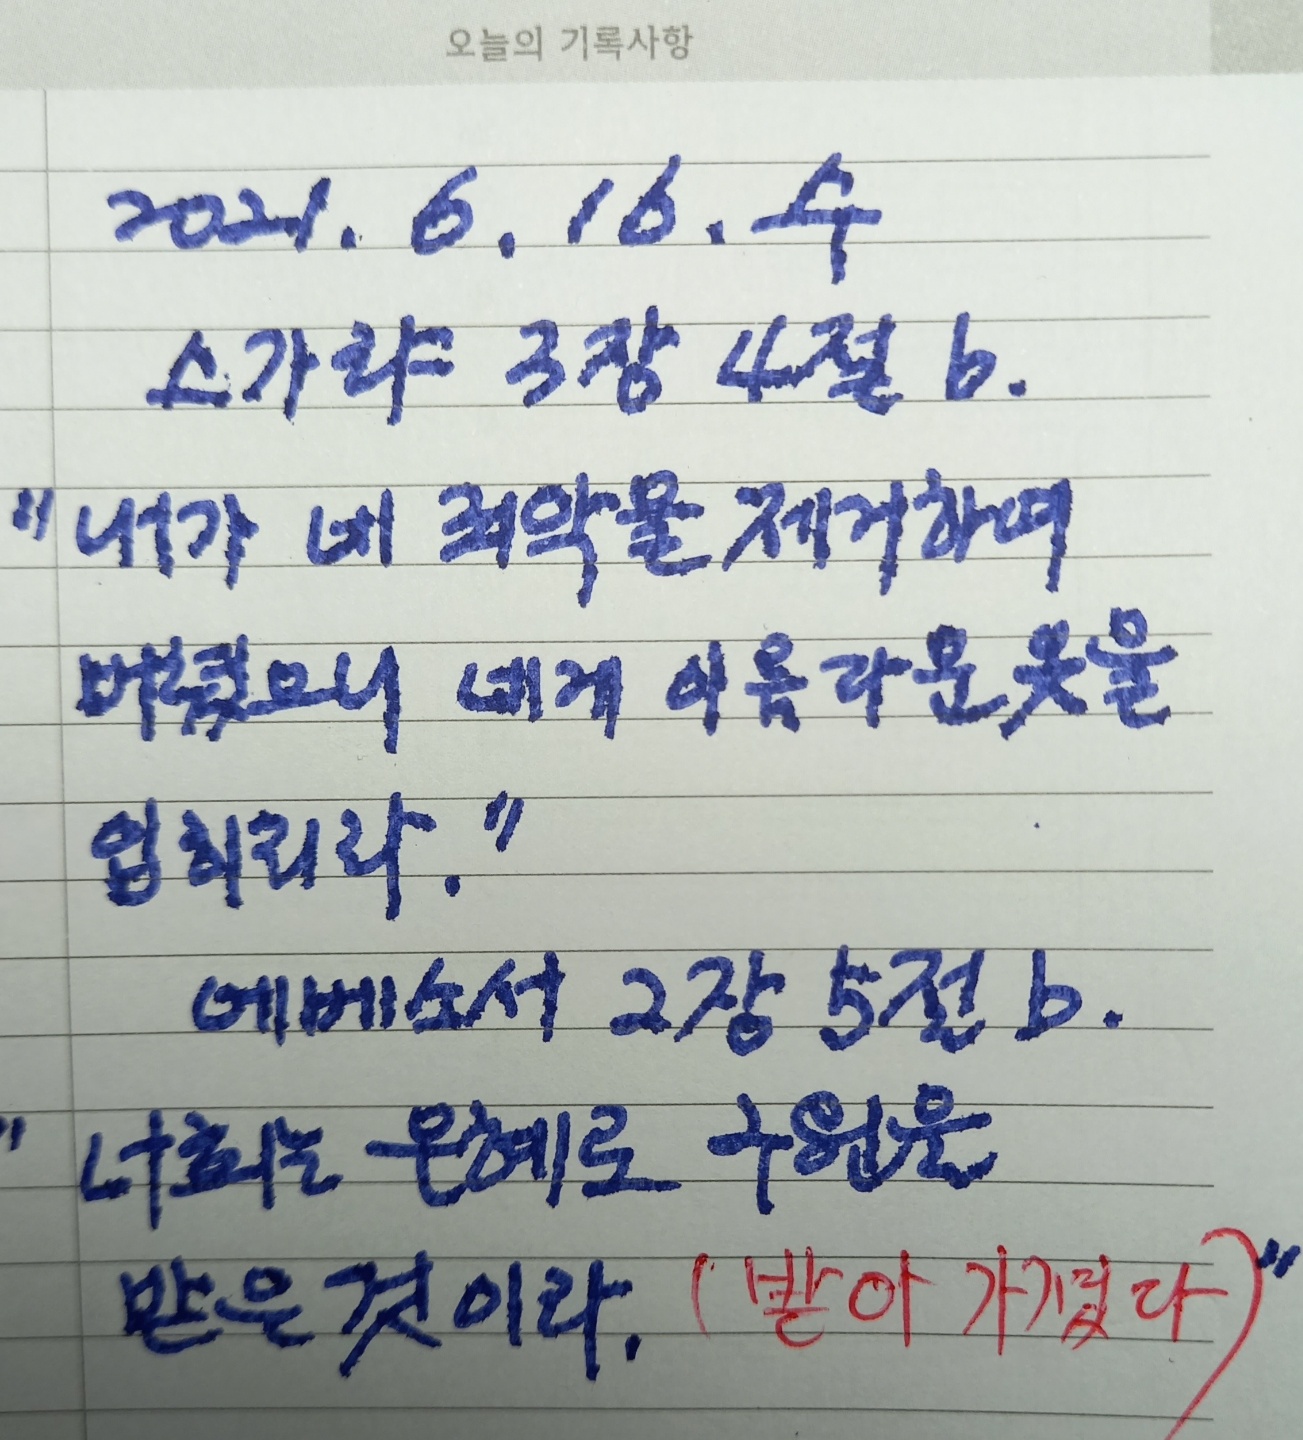 오늘의 기록사항
2021. 6. 16. 수
스가랴 3장 4절 b.
"내가 네 죄악을 제거하여
버렸으니 네게 아름다운 옷을
입히리라."
에베소서 2장 5절 b.
"너희는 은혜로 구원을
받은 것이라. (받아 가졌다)"